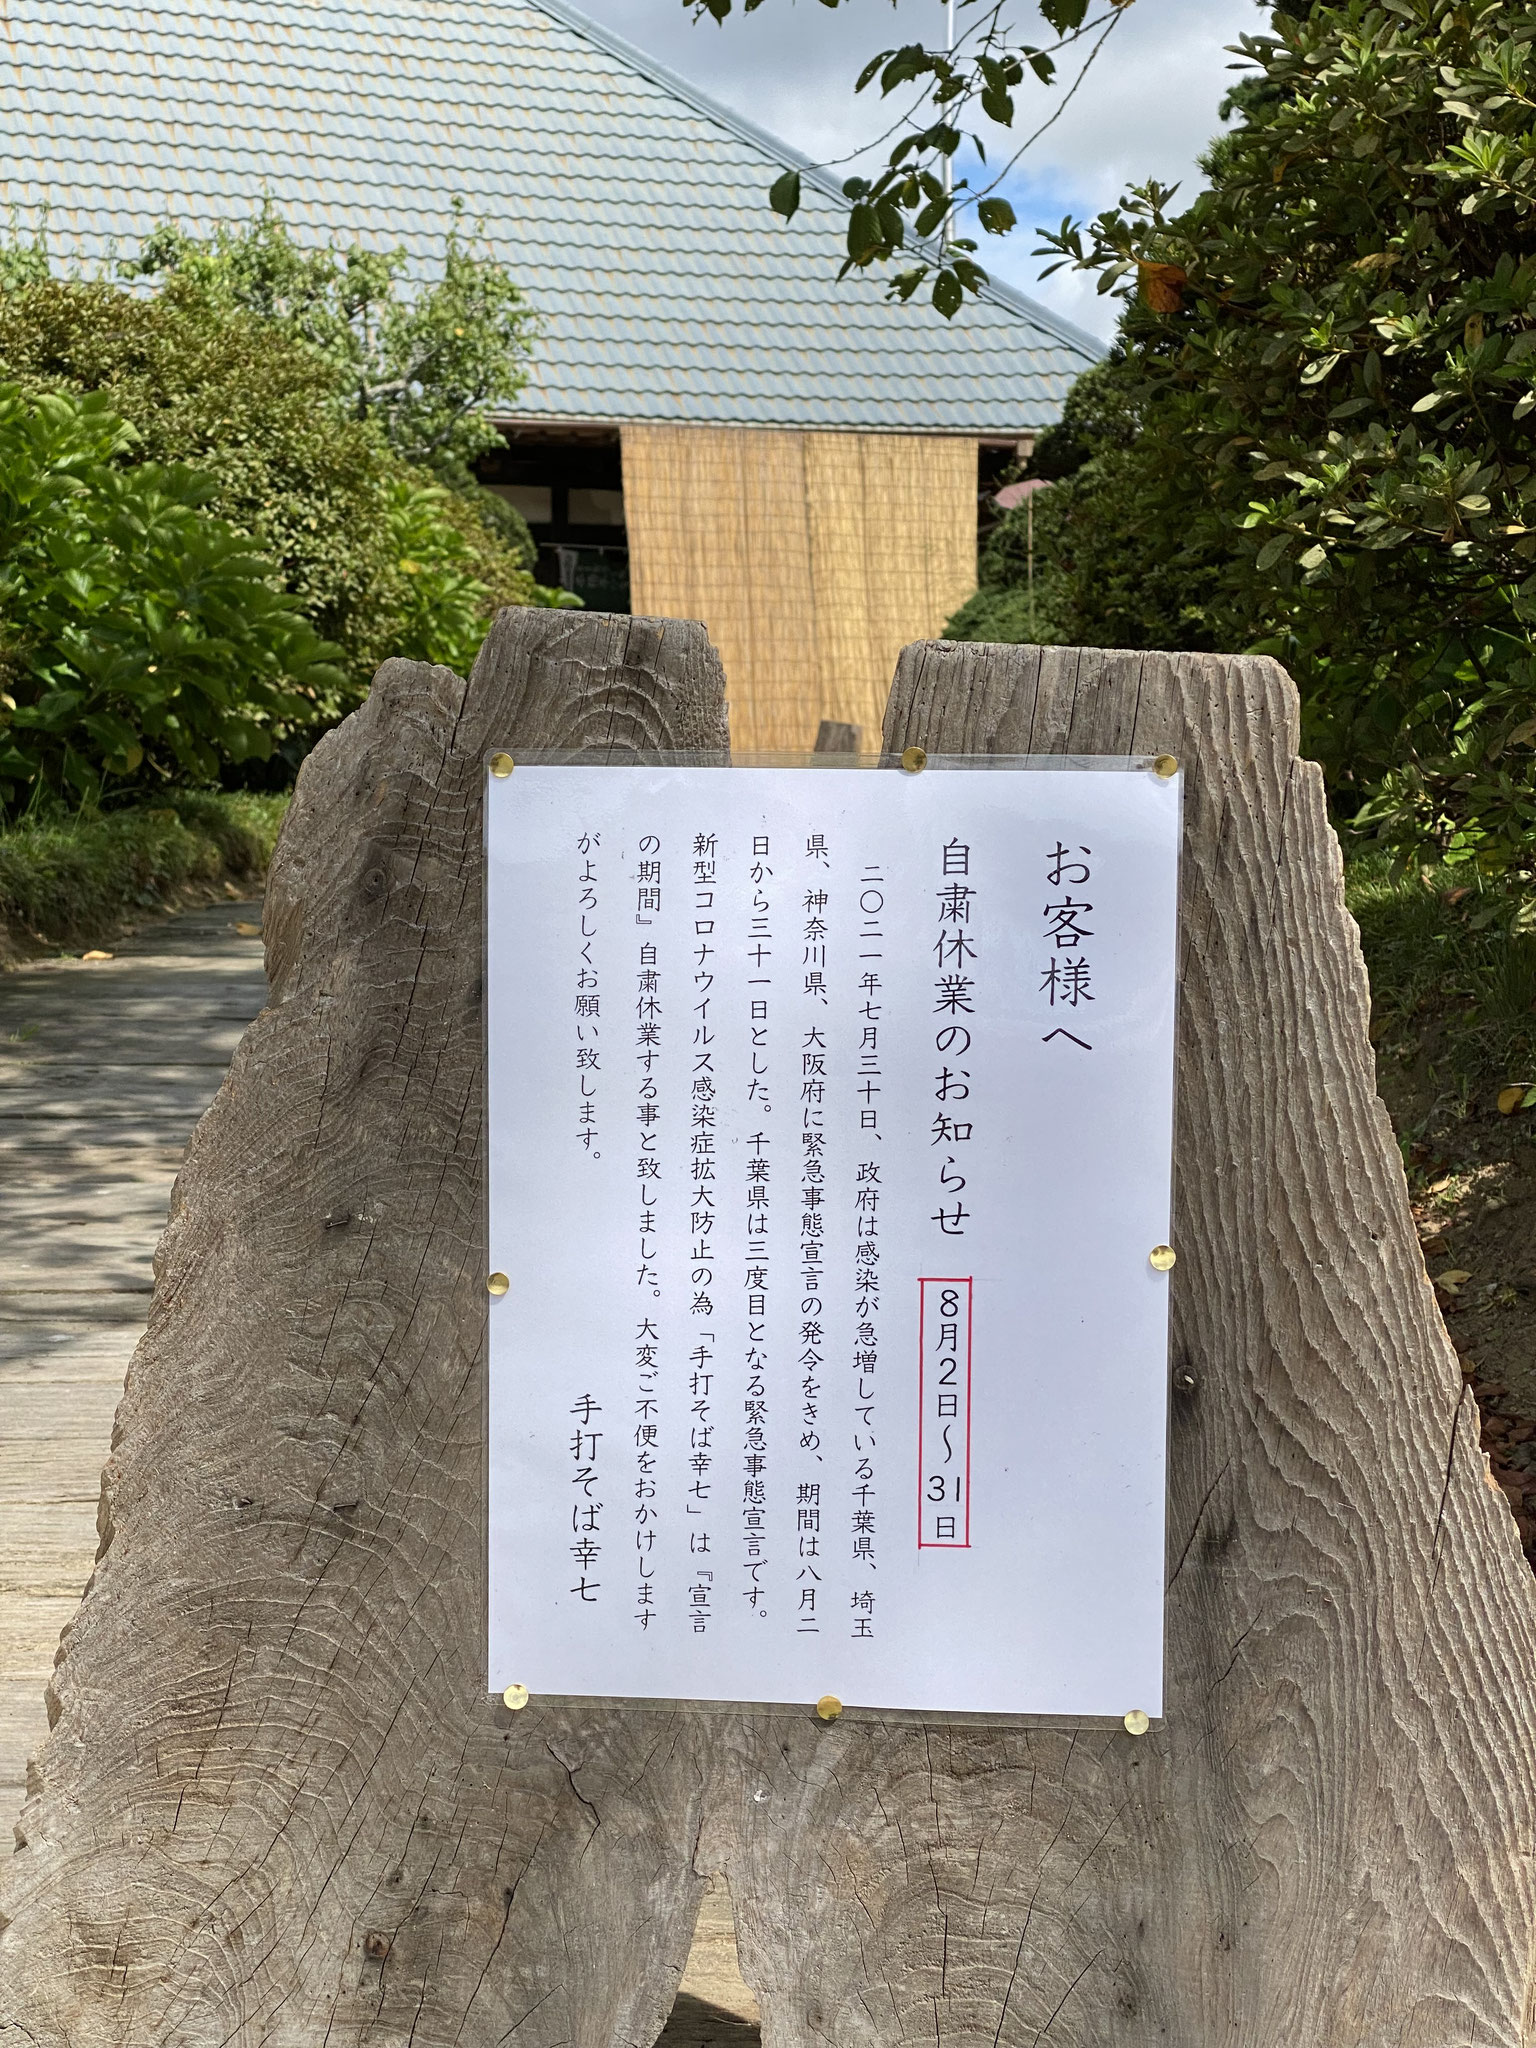 お客様へ
自粛休業のお知らせ 8月2日～31日
二〇二一年七月三十日、政府は感染が急増している千葉県、埼玉
県、神奈川県、大阪府に緊急事態宣言の発令をきめ、期間は八月二
日から三十一日とした。千葉県は三度目となる緊急事態宣言です。
新型コロナウイルス感染症拡大防止の為「手打そば幸七」は『宣言
の期間』自粛休業する事と致しました。大変ご不便をおかけします
がよろしくお願い致します。
手打そば幸七